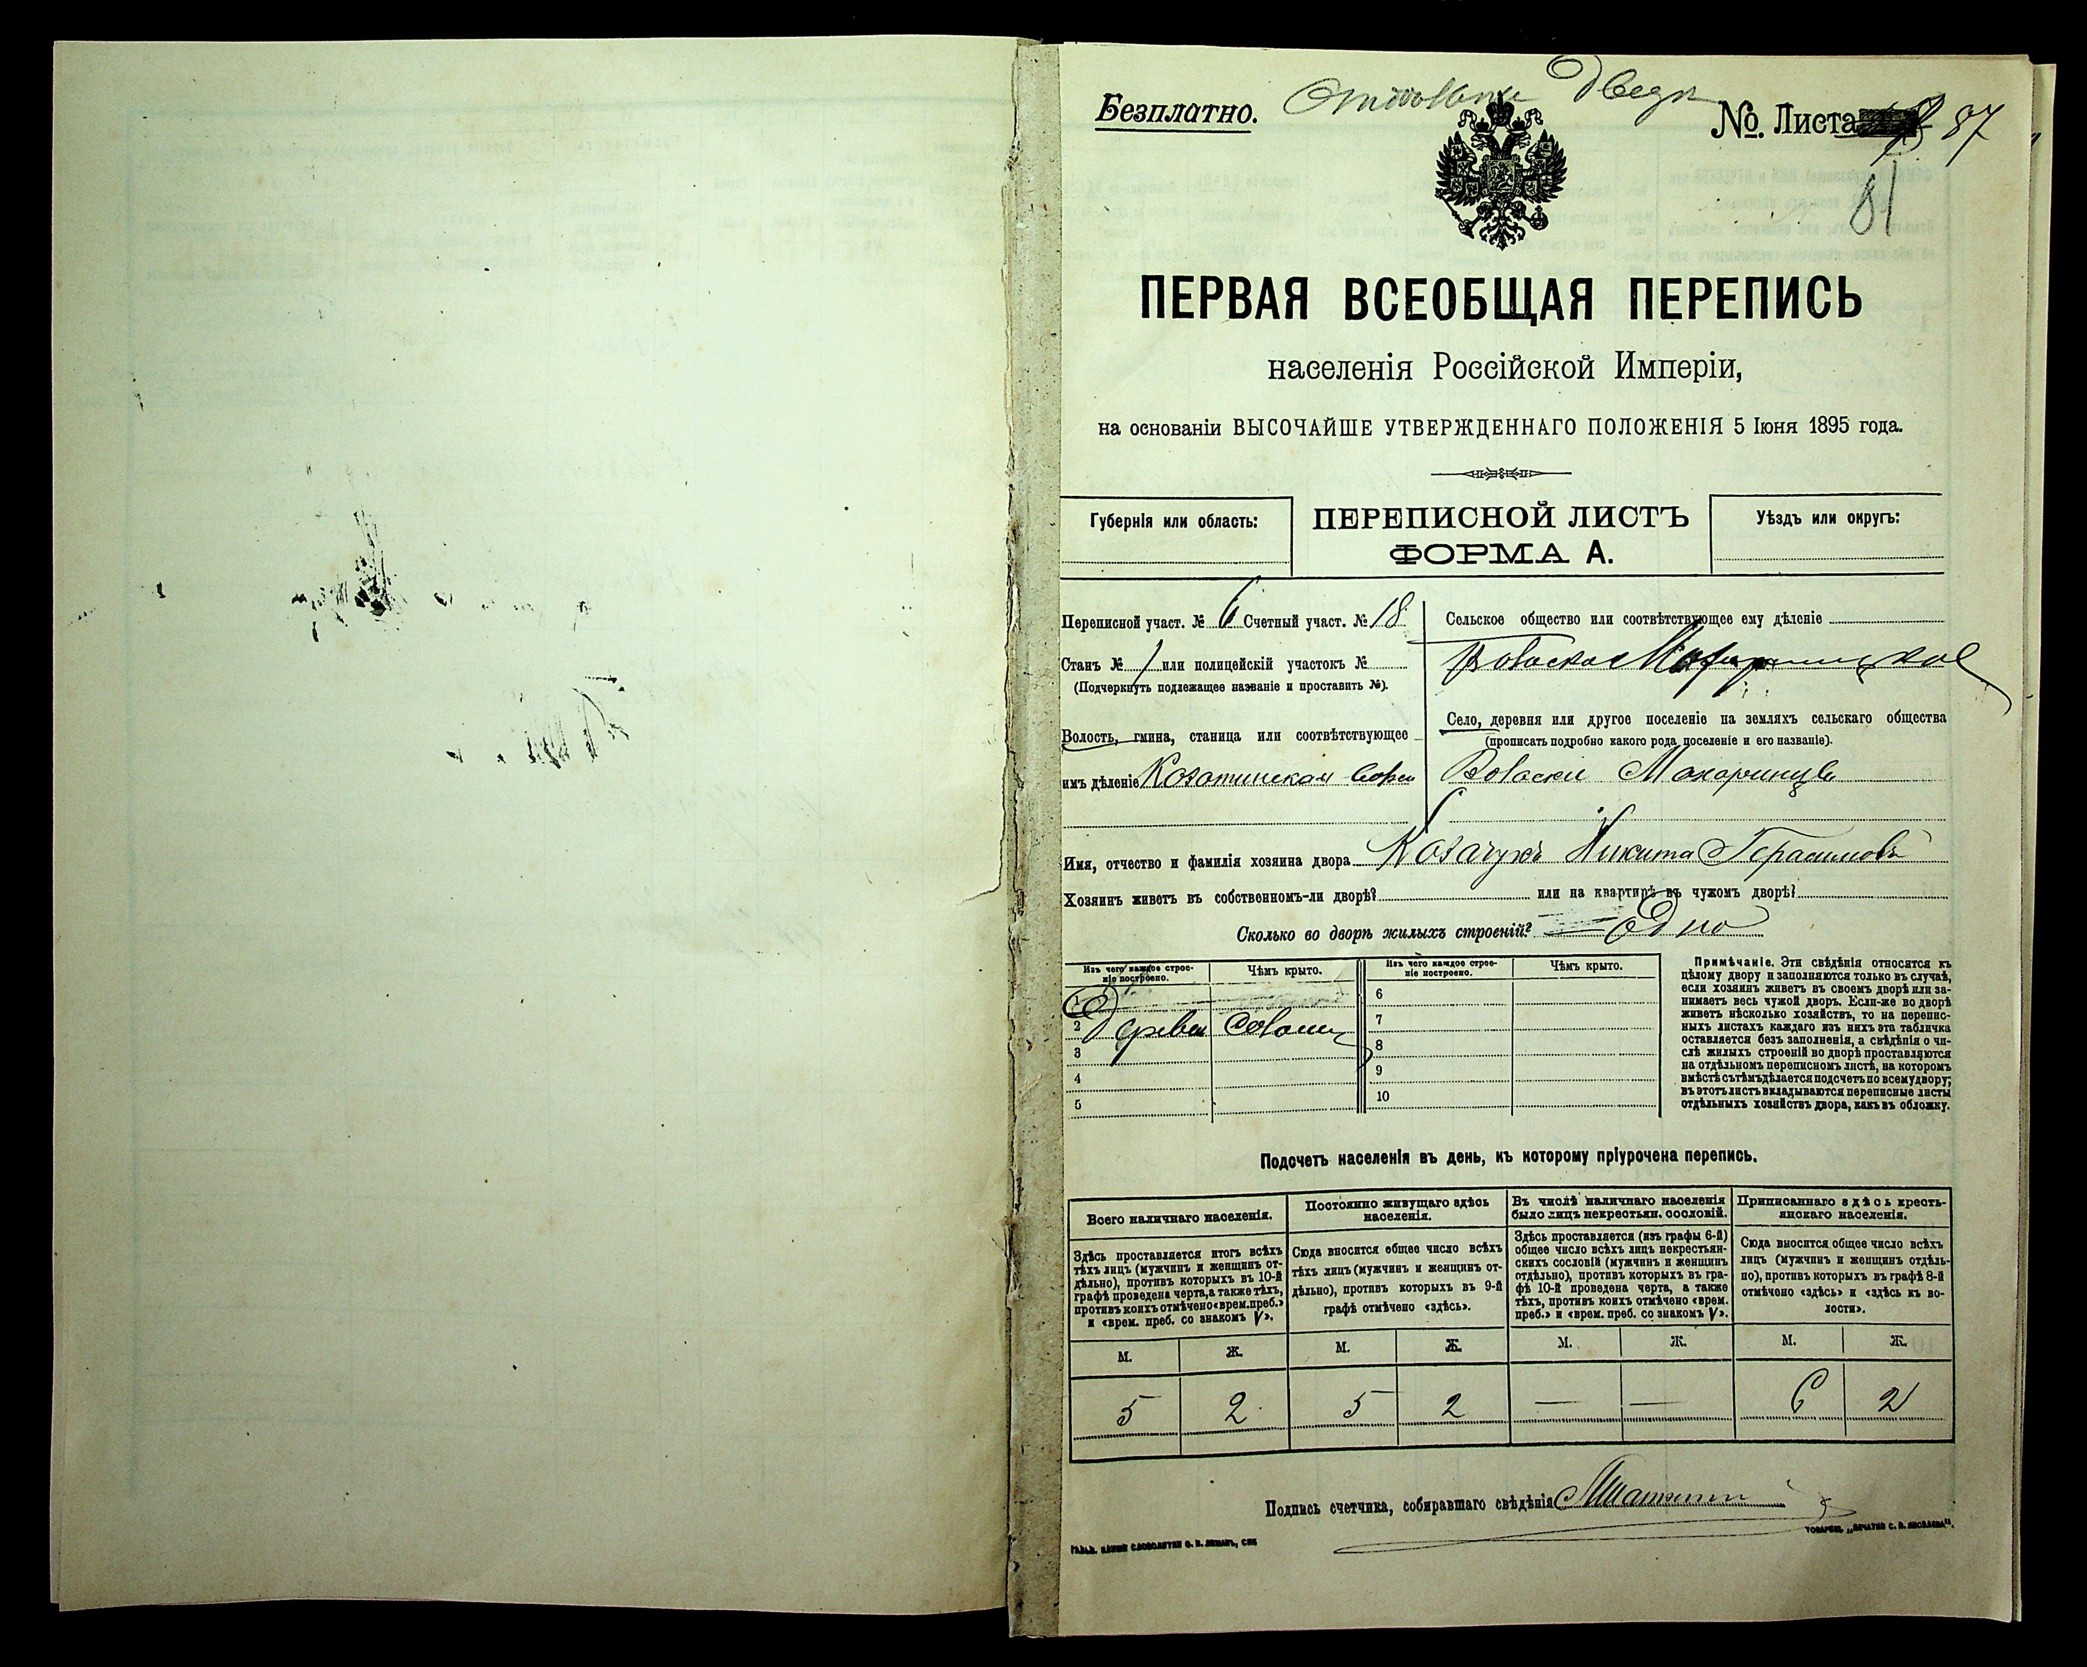 Безплатно.
№ Листа 87
81
ПЕРВАЯ ВСЕОБЩАЯ ПЕРЕПИСЬ
населенія Россійской Имперіи,
на основаніи ВЫСОЧАЙШЕ УТВЕРЖДЕННАГО ПОЛОЖЕНІЯ 5 Іюня 1895 года.
Губернія или область:
ПЕРЕПИСНОЙ ЛИСТЪ
ФОРМА А.
Уѣздъ или округъ:
Переписной участ. № 6 Счетный участ. № 18
Станъ № 1 или полицейскій участокъ №
(Подчеркнуть подлежащее названіе и проставить №).
Волость, гмина, станица или соотвѣтствующее
имъ дѣленіе Козатинская
Сельское общество или соотвѣтствующее ему дѣленіе
Село, деревня или другое поселеніе на земляхъ сельскаго общества
(прописать подробно какого рода поселеніе и его названіе).
Махаринцы
Имя, отчество и фамилія хозяина двора Козачукъ Никита Герасимовъ
Хозяинъ живетъ въ собственномъ-ли дворѣ? или на квартирѣ въ чужомъ дворѣ?
Сколько во дворѣ жилыхъ строеній? Одно
Изъ чего каждое строеніе построено.
Чѣмъ крыто.
Изъ чего каждое строеніе построено.
Чѣмъ крыто.
1
2
3
4
5
6
7
8
9
10
Примѣчаніе. Эти свѣдѣнія относятся къ
цѣлому двору и заполняются только въ случаѣ,
если хозяинъ живетъ въ своемъ дворѣ или за-
нимаетъ весь чужой дворъ. Если-же во дворѣ
живетъ нѣсколько хозяйствъ, то на перепис-
ныхъ листахъ каждаго изъ нихъ эта табличка
оставляется безъ заполненія, а свѣдѣнія о чи-
слѣ жилыхъ строеній во дворѣ проставляются
на отдѣльномъ переписномъ листѣ, на которомъ
вмѣстѣ съ тѣмъ дѣлается подсчетъ по всему двору;
въ этотъ листъ вкладываются переписные листы
отдѣльныхъ хозяйствъ двора, какъ въ обложку.
Подсчетъ населенія въ день, къ которому пріурочена перепись.
Всего наличнаго населенія.
Здѣсь проставляется итогъ всѣхъ
тѣхъ лицъ (мужчинъ и женщинъ от-
дѣльно), противъ которыхъ въ 10-й
графѣ проведена черта, а также тѣхъ,
противъ коихъ отмѣчено «врем. преб.»
и «врем. преб. со знакомъ V».
Постоянно живущаго здѣсь
населенія.
Сюда вносится общее число всѣхъ
тѣхъ лицъ (мужчинъ и женщинъ от-
дѣльно), противъ которыхъ въ 9-й
графѣ отмѣчено «здѣсь».
Въ числѣ наличнаго населенія
было лицъ некрестьян. сословій.
Здѣсь проставляется (изъ графы 6-й)
общее число всѣхъ лицъ некрестьян-
скихъ сословій (мужчинъ и женщинъ
отдѣльно), противъ которыхъ въ гра-
фѣ 10-й проведена черта, а также
тѣхъ, противъ коихъ отмѣчено «врем.
преб.» и «врем. преб. со знакомъ V».
Приписаннаго здѣсь кресть-
янскаго населенія.
Сюда вносится общее число всѣхъ
лицъ (мужчинъ и женщинъ отдѣль-
но), противъ которыхъ въ графѣ 8-й
отмѣчено «здѣсь» и «здѣсь къ во-
лости».
М. Ж. М. Ж. М. Ж. М. Ж.
5 2 5 2 — — 6 2
Подпись счетчика, собиравшаго свѣдѣнія